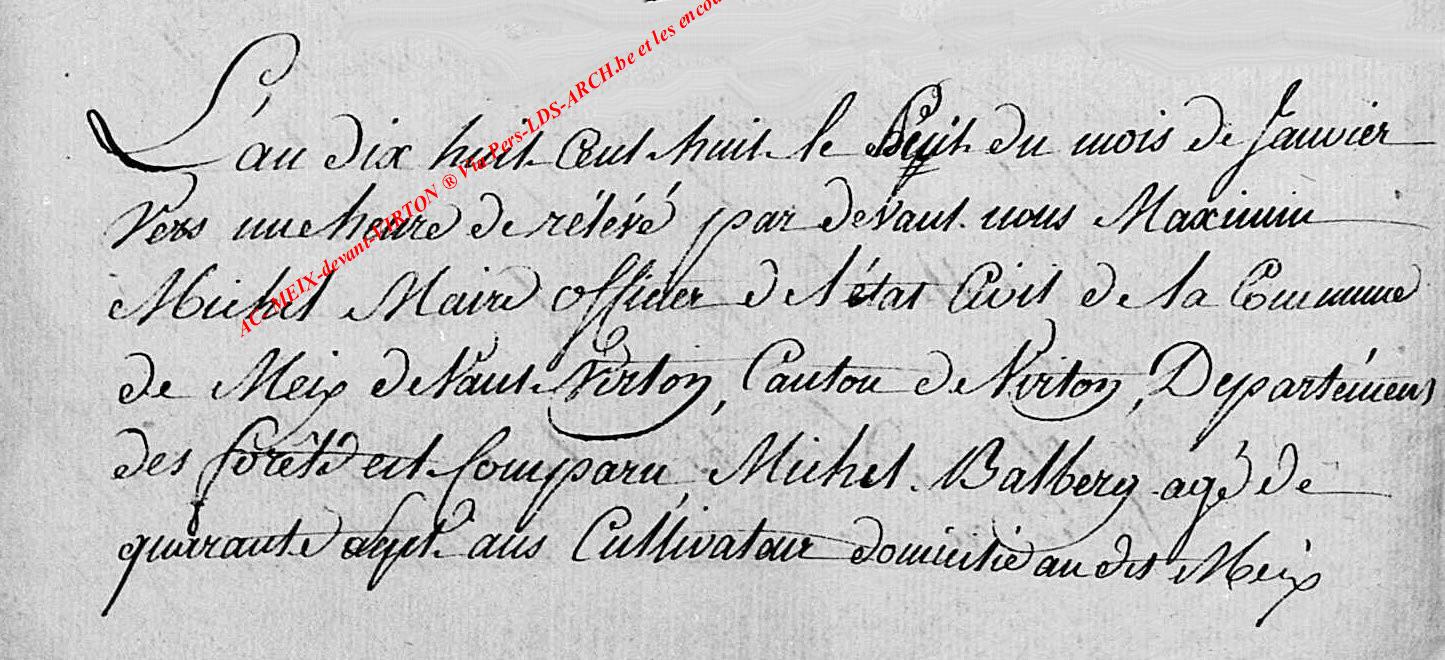 AC-MEIX-devant-VIRTON ® Via Pers-LDS-ARCH.be et les encou
L'an dix huit Cent huit le du mois de Janvier
Vers une heure de rélévé par devant nous Maximin
Michel Maire officier de l'état Civil de la Commune
de Meix devant Virton, Canton de Virton, Départémens
des forêts est Comparu Michel Balbery agé de
quarante sept ans Cultivateur domicilié au dit Meix